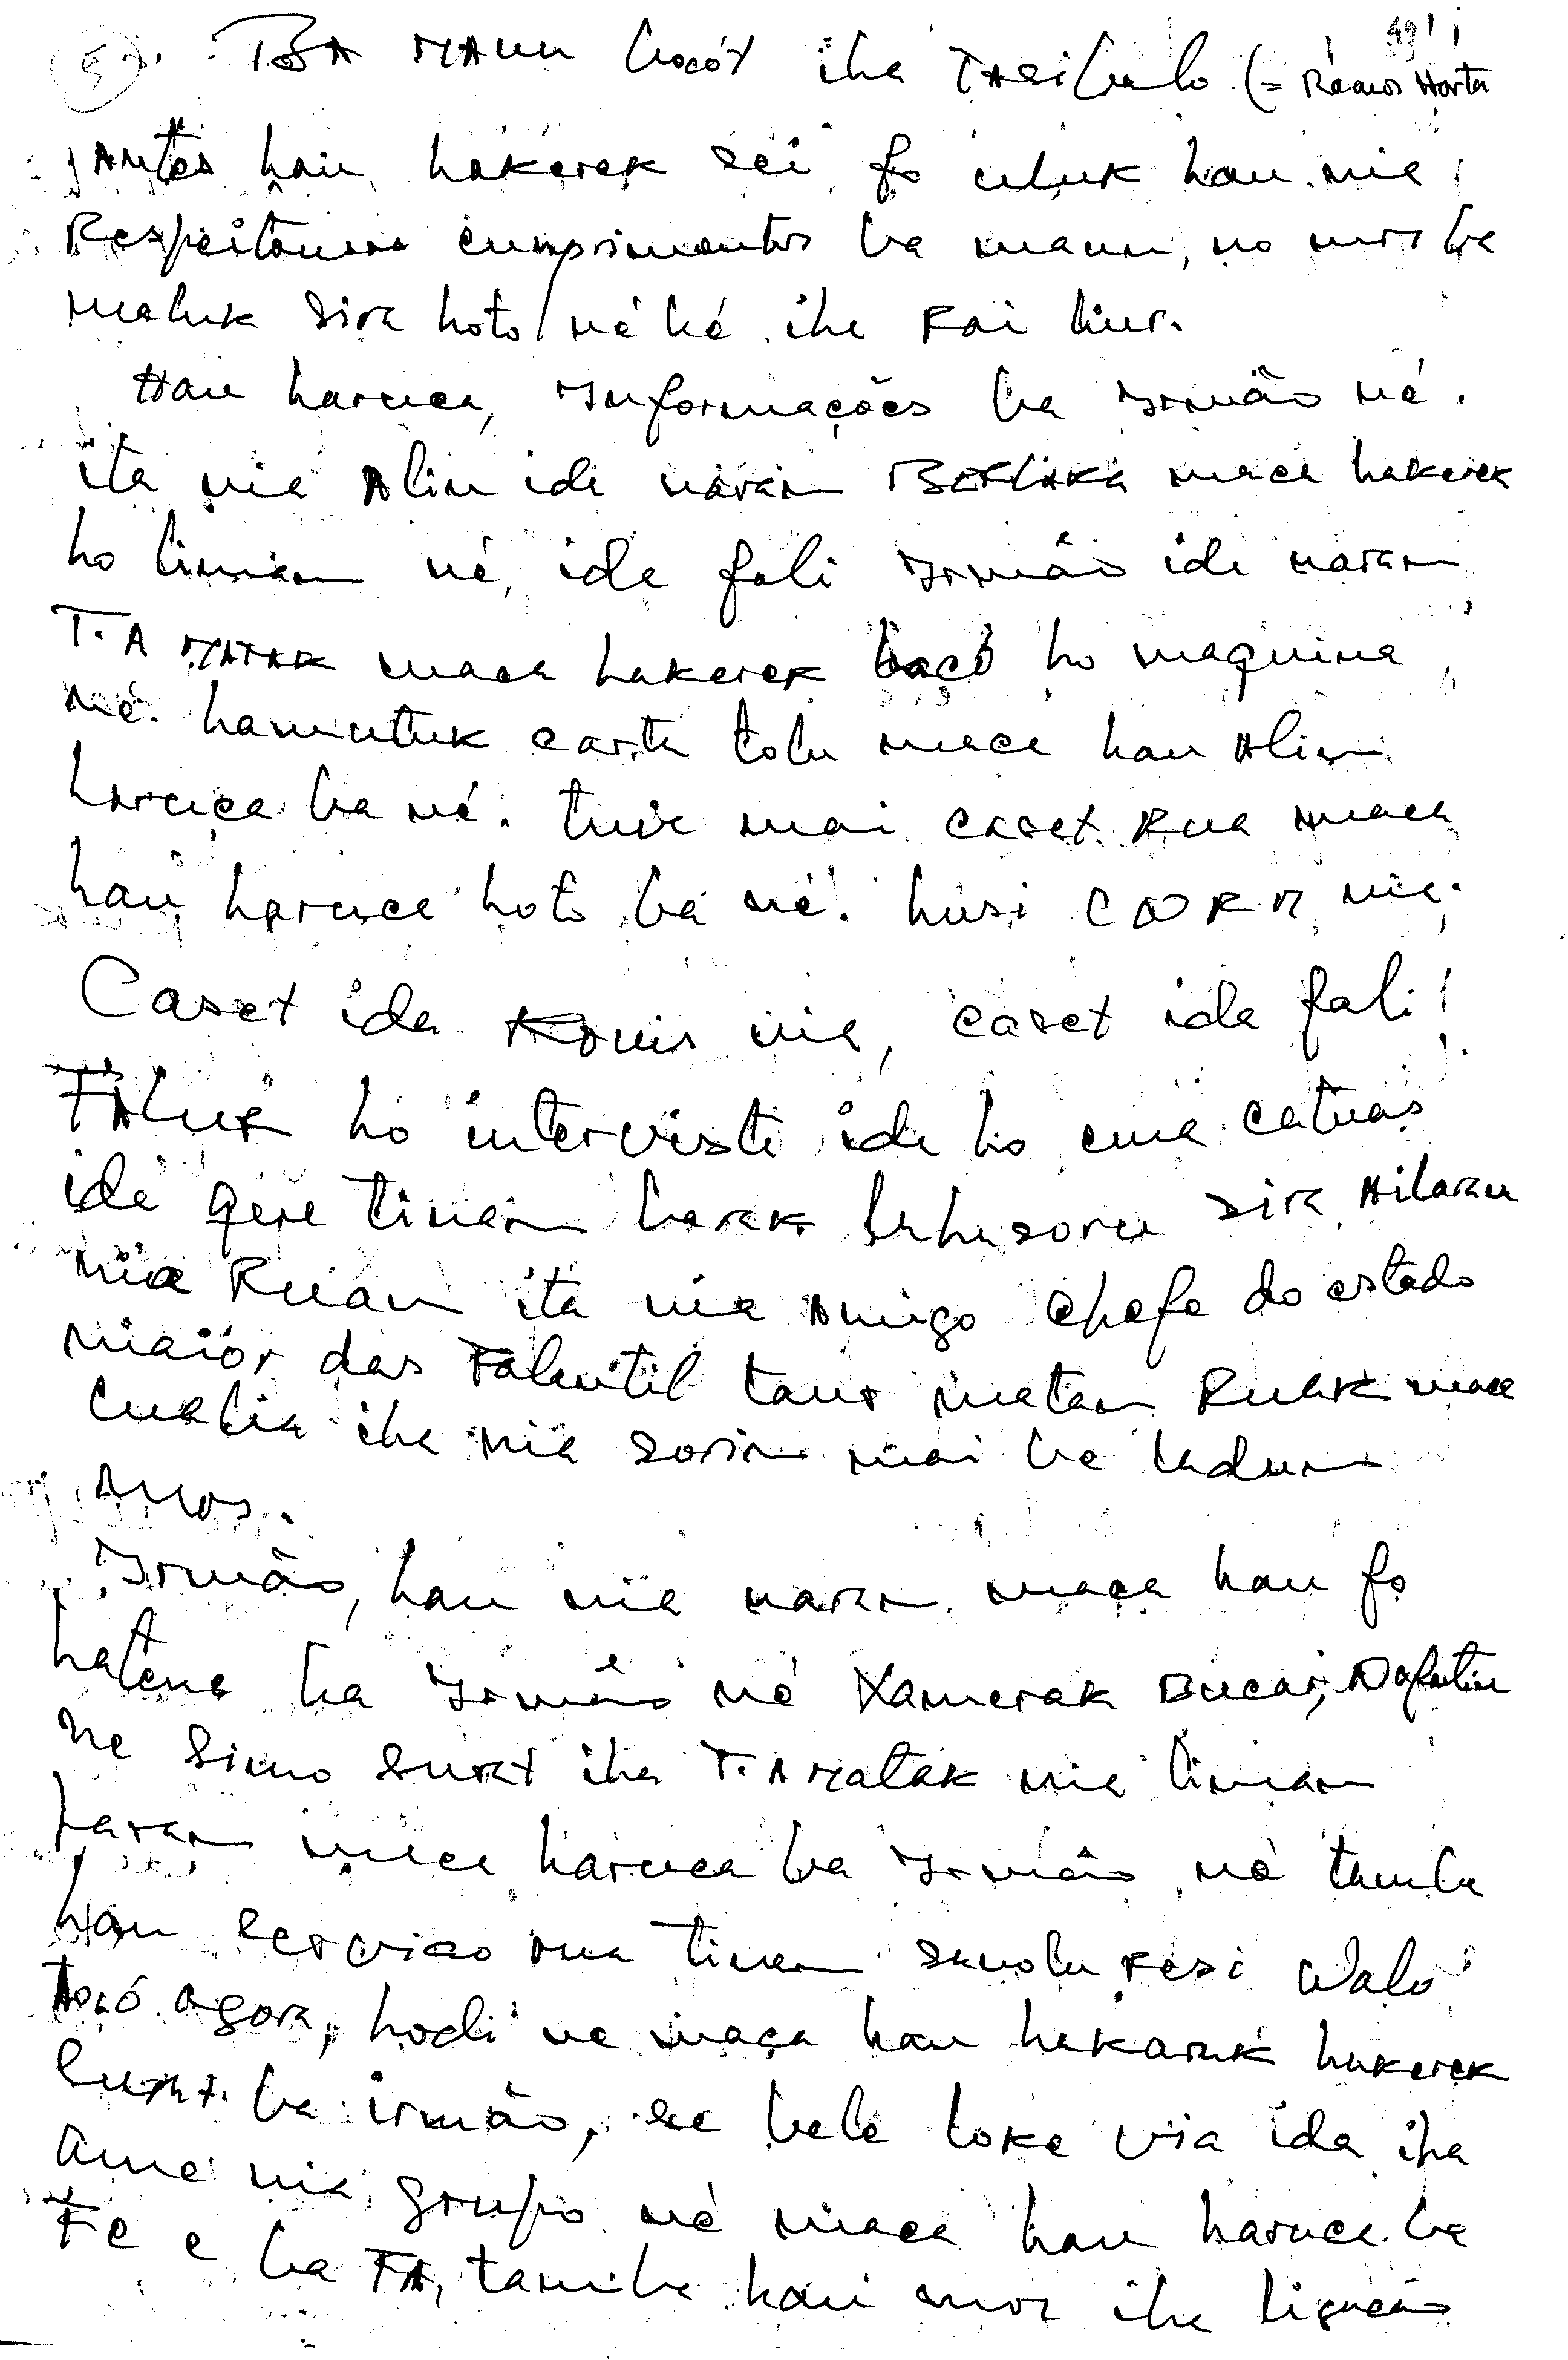 5). BA MAun hocót iha TAsibalo (= Ramos Horta
49!
Antes hau hakerek sei fo uluk hau nia
Respeitousos cumprimentos ba maun, no mos ba
maluk sira hoto né bé iha Rai liur.
Hau haruca, Informações ba Irmão né.
ita nia Alin ida naran BERLAKA maca hakerek
ho liman né, ida fali Irmão ida naran
T.A MATAK maca hakerek ho maquina
né. hamutuk carta tolu maca hau Alin
haruca ba né. tuir mai caset Rua maca
hau haruca hoto ba né. husi CNRM nia.
Caset ida Konis nia, caset ida fali
FAluk ho intervista ida ho ema catuas
ida tinan barak sira Hilaku
nia Ruan ita nia Amigo chefe do estado
maiór das Falintil taur matan RUAK maca
cualia iha nia sorin mai ba
Amos.
Irmão, hau nia naran maca hau fo
hatene ba Irmão né Xamerak Bucar, Dafutin
ne simo surat iha T.A Matak nia liman
haran maca haruca ba Irmão né tamba
hau servico tinan sanolu Resi Walo
Tocó agora, hodi ne maca hau hakarak hakerek
Surat ba irmão, se bele loke via ida iha
ame nia grupo né maca hau haruca ba
FC e ba FA, tamba hau mos iha ligacão